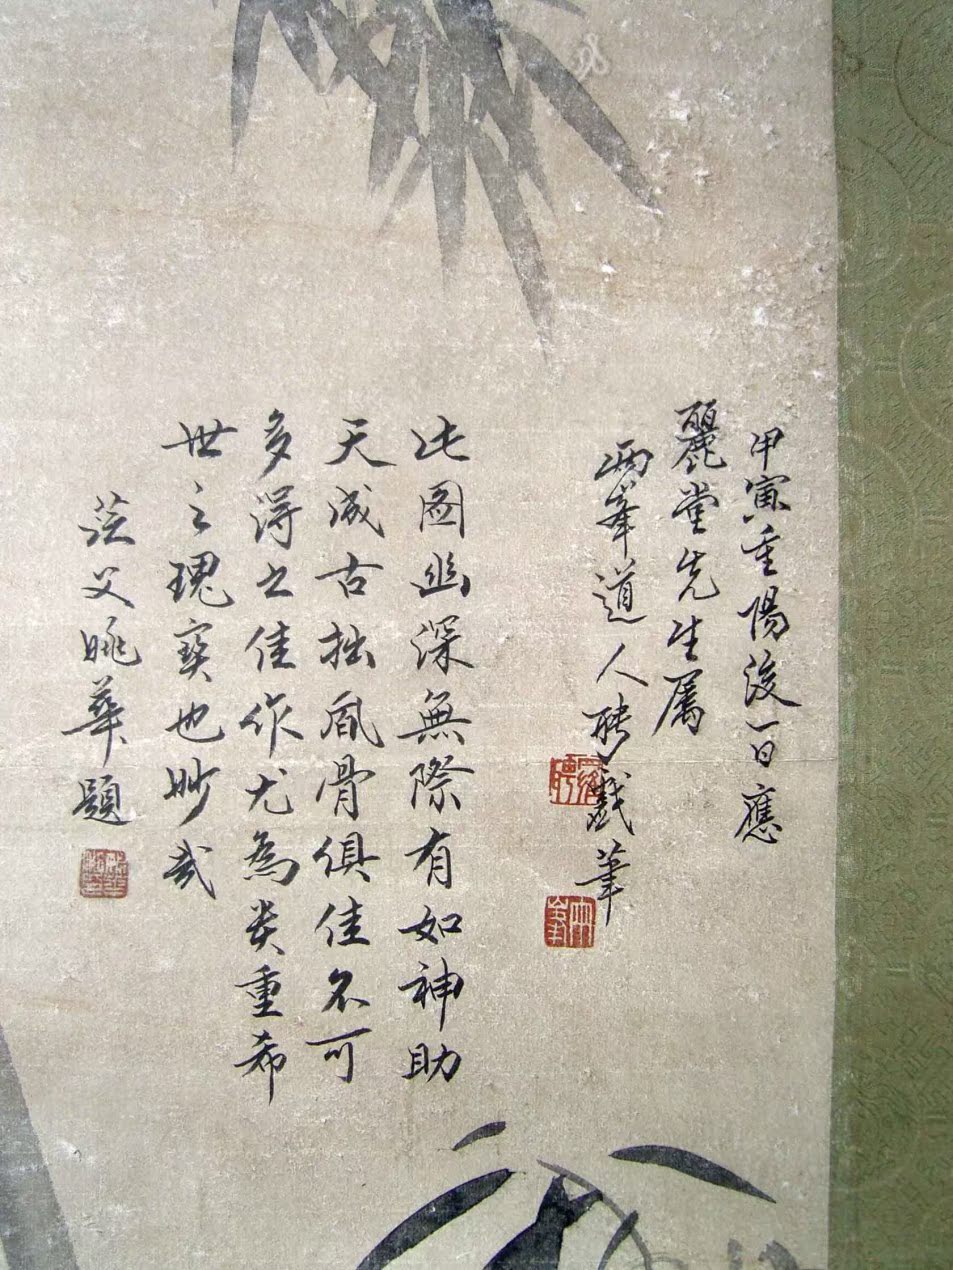 甲寅重陽後一日應
麗堂先生属
兩峯道人聘戲筆
羅聘
兩峯
此圖幽深無際有如神助
天成古拙風骨俱佳不可
多得之佳作尤為貴重希
世之瑰寶也妙哉
茫父姚華題
姚華